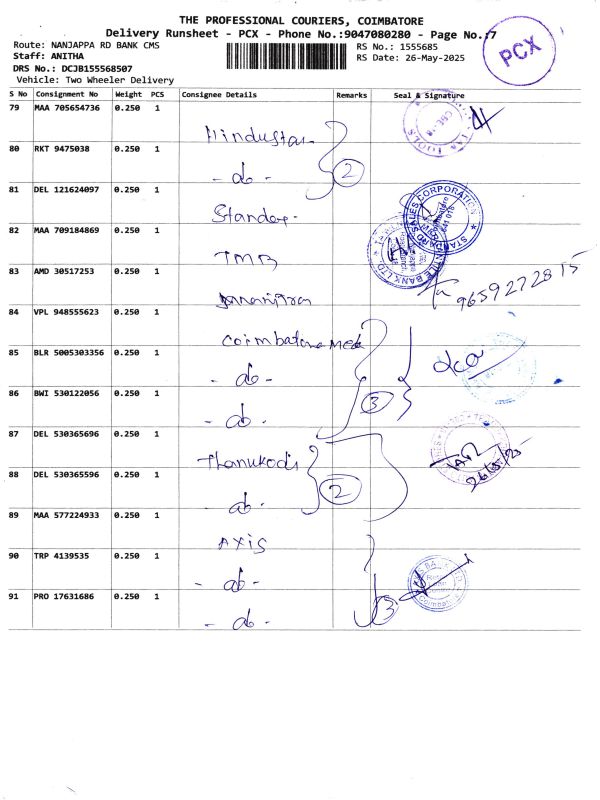 THE PROFESSIONAL COURIERS, COIMBATORE
Delivery Runsheet - PCX - Phone No.:9047080280 - Page No.:7
Route: NANJAPPA RD BANK CMS
Staff: ANITHA
DRS No.: DCJB155568507
Vehicle: Two Wheeler Delivery
RS No.: 1555685
RS Date: 26-May-2025
PCX
S No Consignment No Weight PCS Consignee Details Remarks Seal & Signature
79 MAA 705654736 0.250 1 Hindustan
80 RKT 9475038 0.250 1 - do - 2
81 DEL 121624097 0.250 1
STANDARD SALES CORPORATION
82 MAA 709184869 0.250 1 TMB
83 AMD 30517253 0.250 1 9659272815
84 VPL 948555623 0.250 1 Coimbatore Med
85 BLR 5005303356 0.250 1 - do -
86 BWI 530122056 0.250 1 - do - 3
87 DEL 530365696 0.250 1 Thanukodi
26/5/25
88 DEL 530365596 0.250 1 do - 2
89 MAA 577224933 0.250 1 AXIS
90 TRP 4139535 0.250 1 - do -
91 PRO 17631686 0.250 1 - do - 3